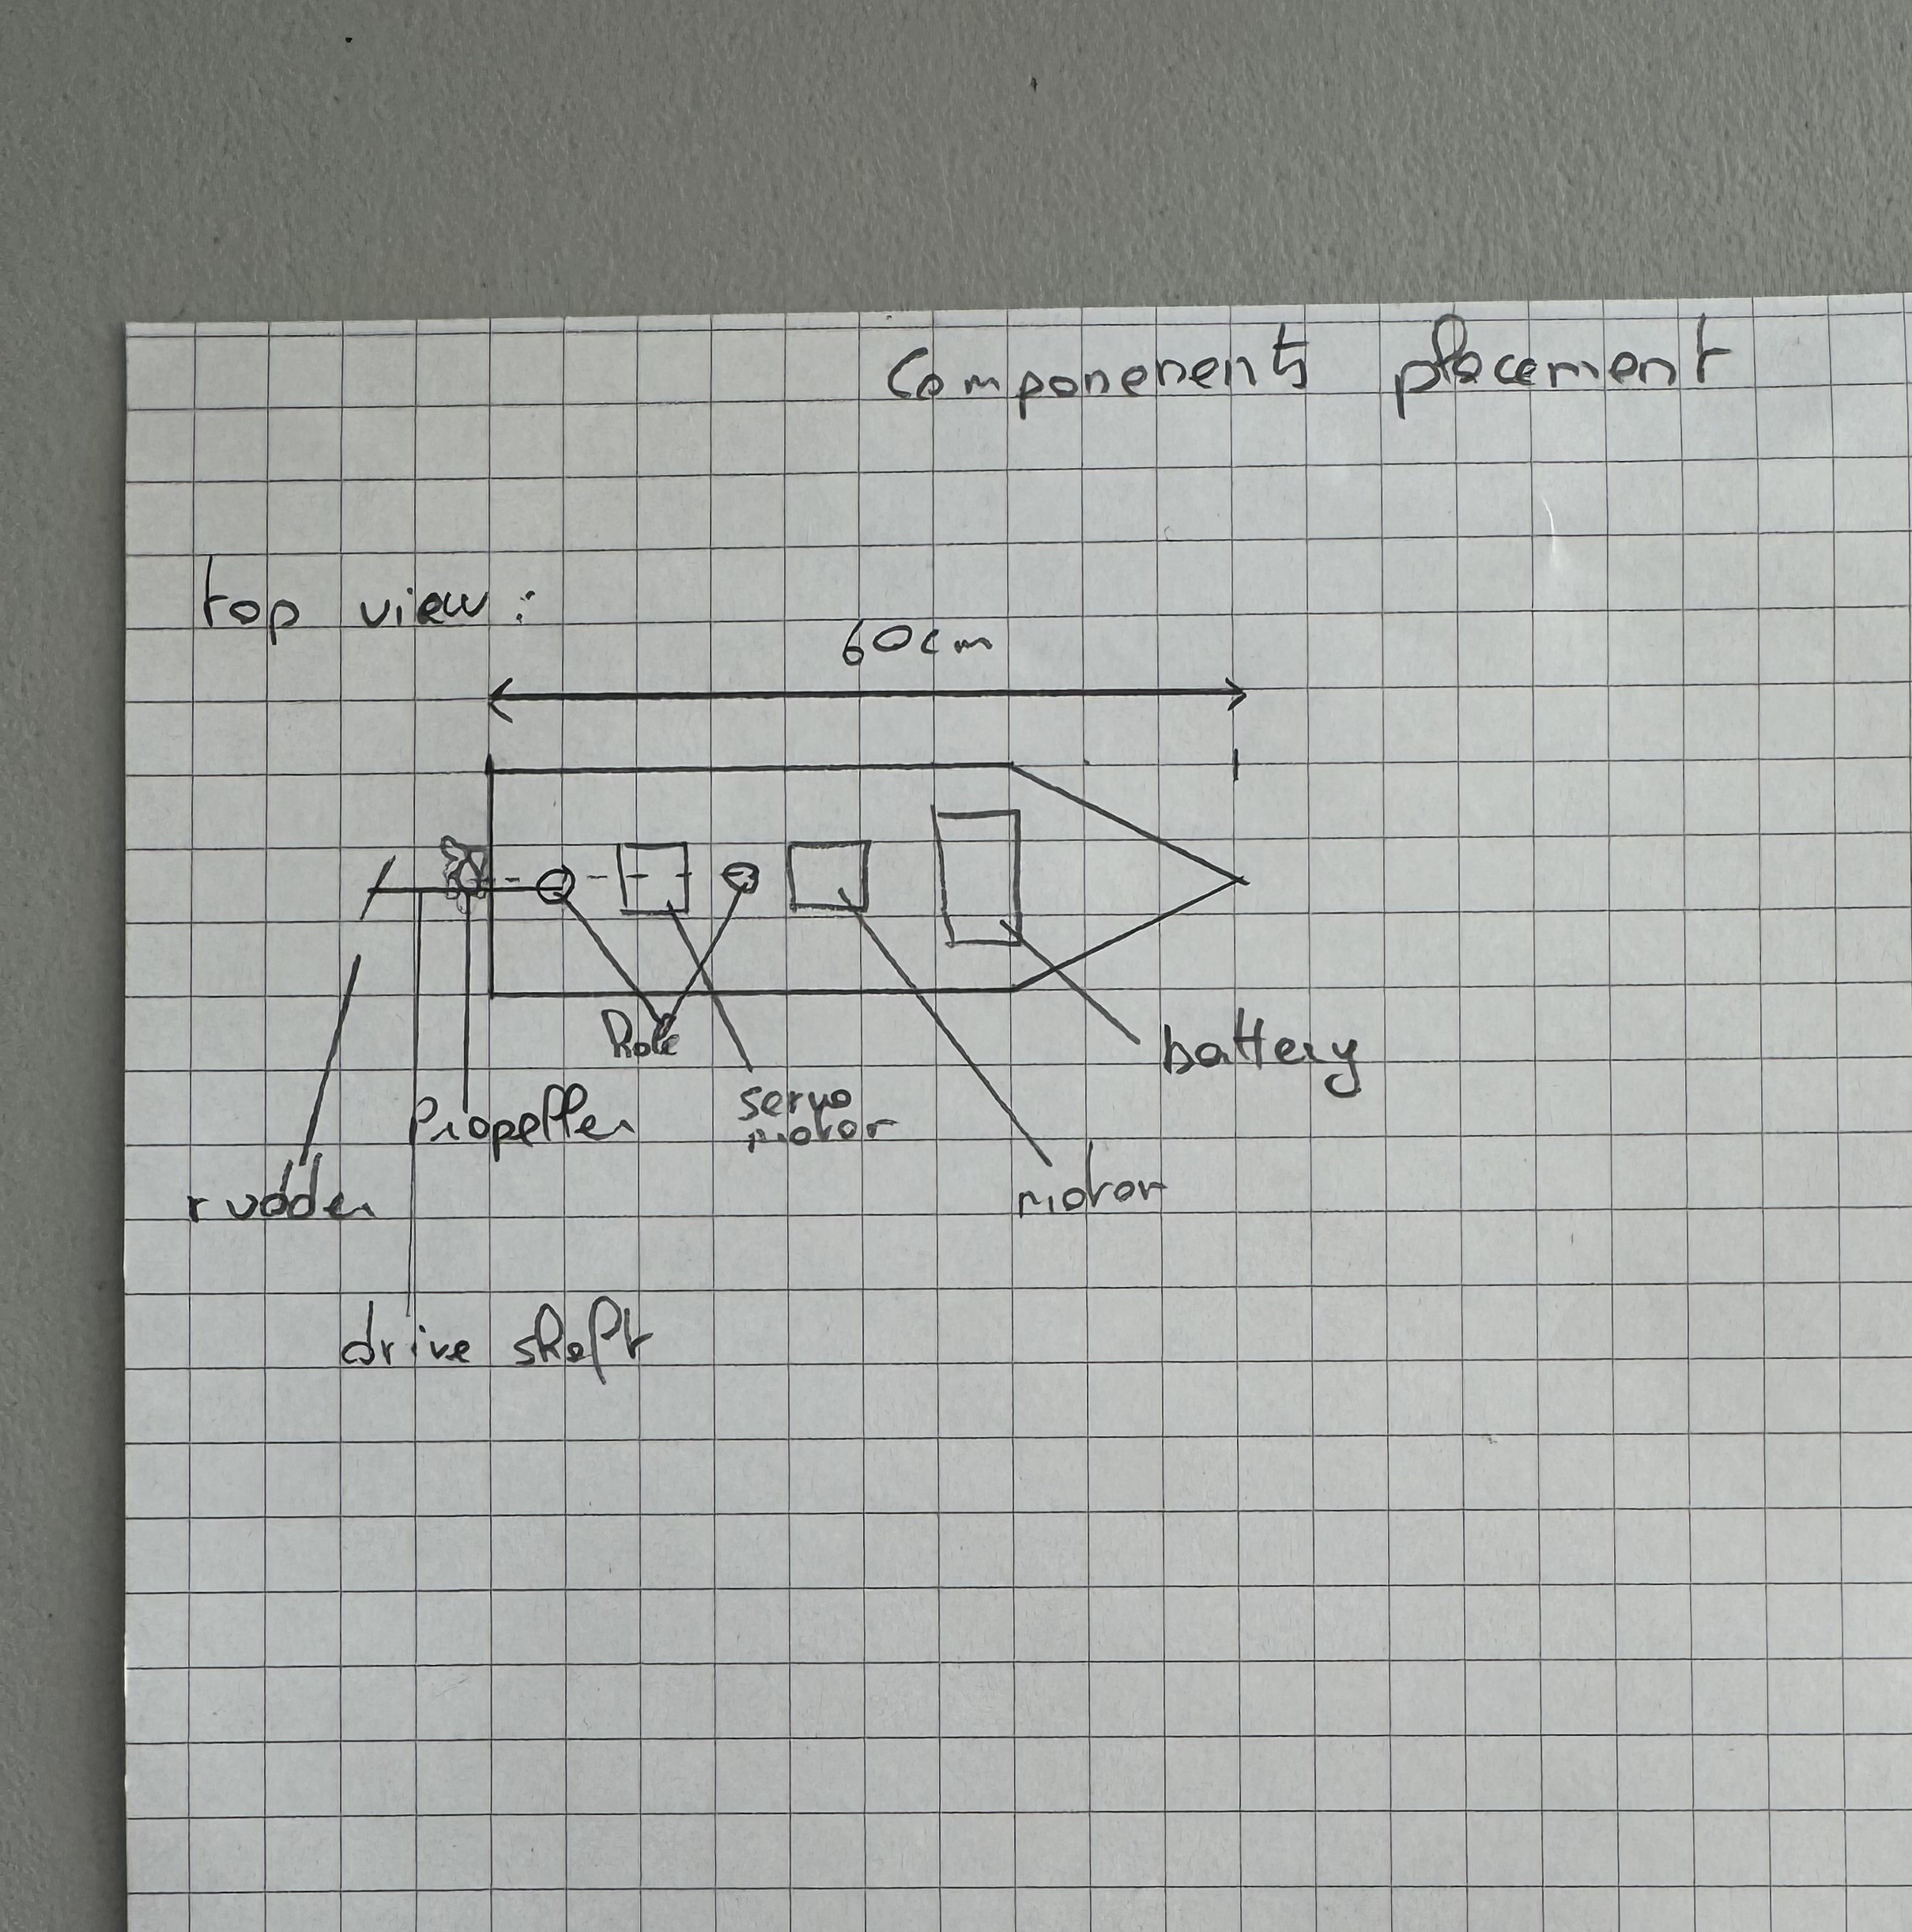 Componenents placement
top view :
60cm
Hole
battery
Propeller
servo
motor
rudder
motor
drive shaft